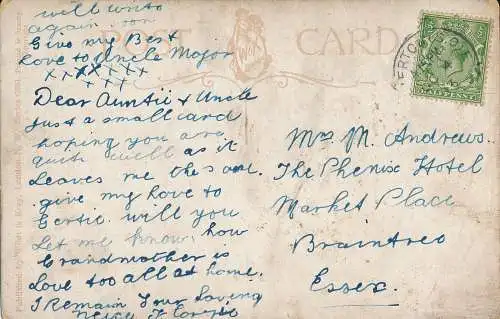 will write
again soon
Give my Best
love to Uncle Major
x x x x x x x
x x x
POST CARD
Dear Auntie & Uncle
Just a small card
hoping you are
quite well as it
leaves me the same
give my love to
Gertie will you
Let me know how
Grandmother is
Love too all at home.
I Remain Your loving
Mrs M. Andrews.
The Phenix Hotel
Market Place
Braintree
Essex.